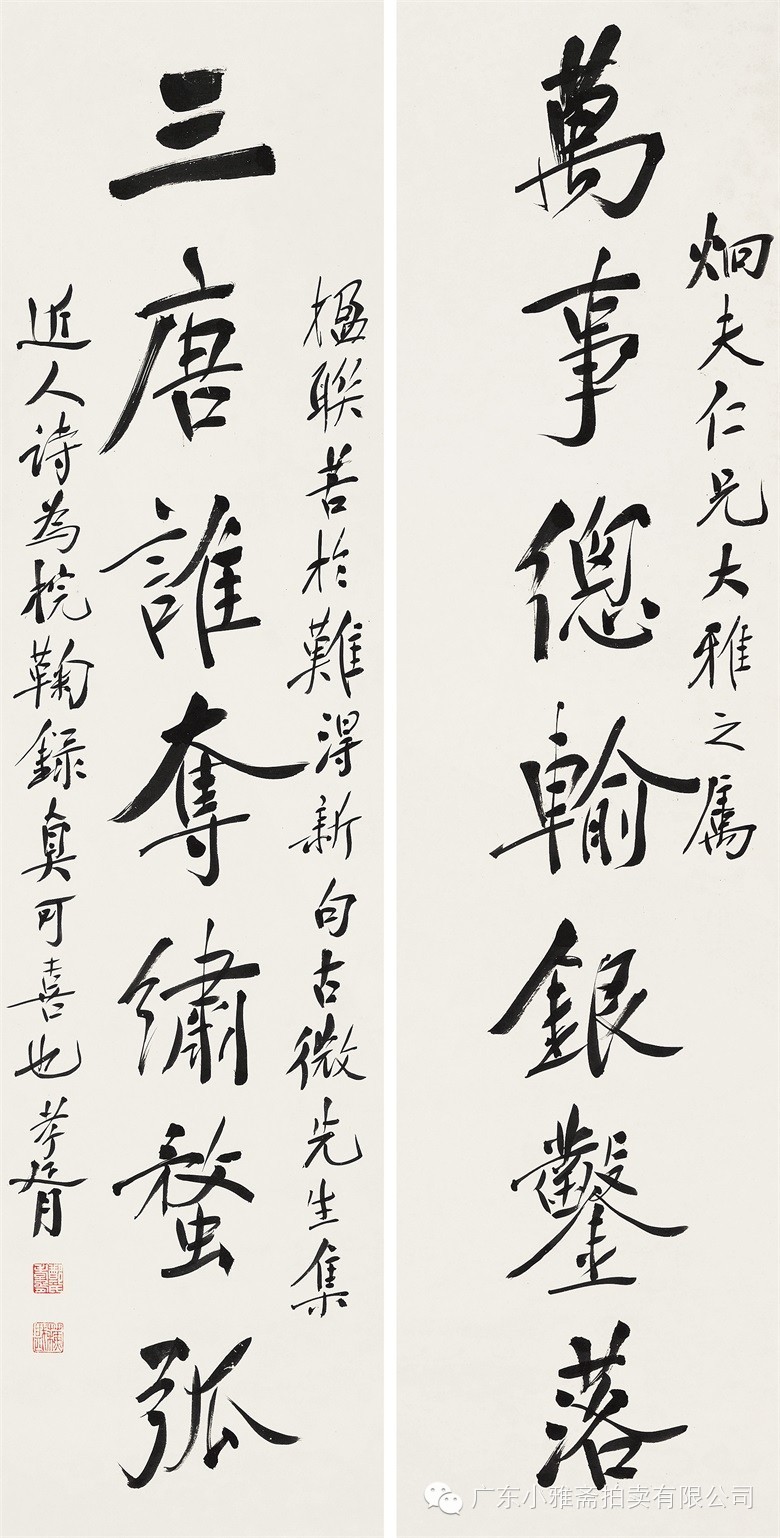 炯夫仁兄大雅之属
萬事總輸銀鑿落
楹聯苦於難得新句古微先生集
三唐誰奪繡蝥弧
近人詩為梡鞠録真可喜也孝胥
广东小雅斋拍卖有限公司